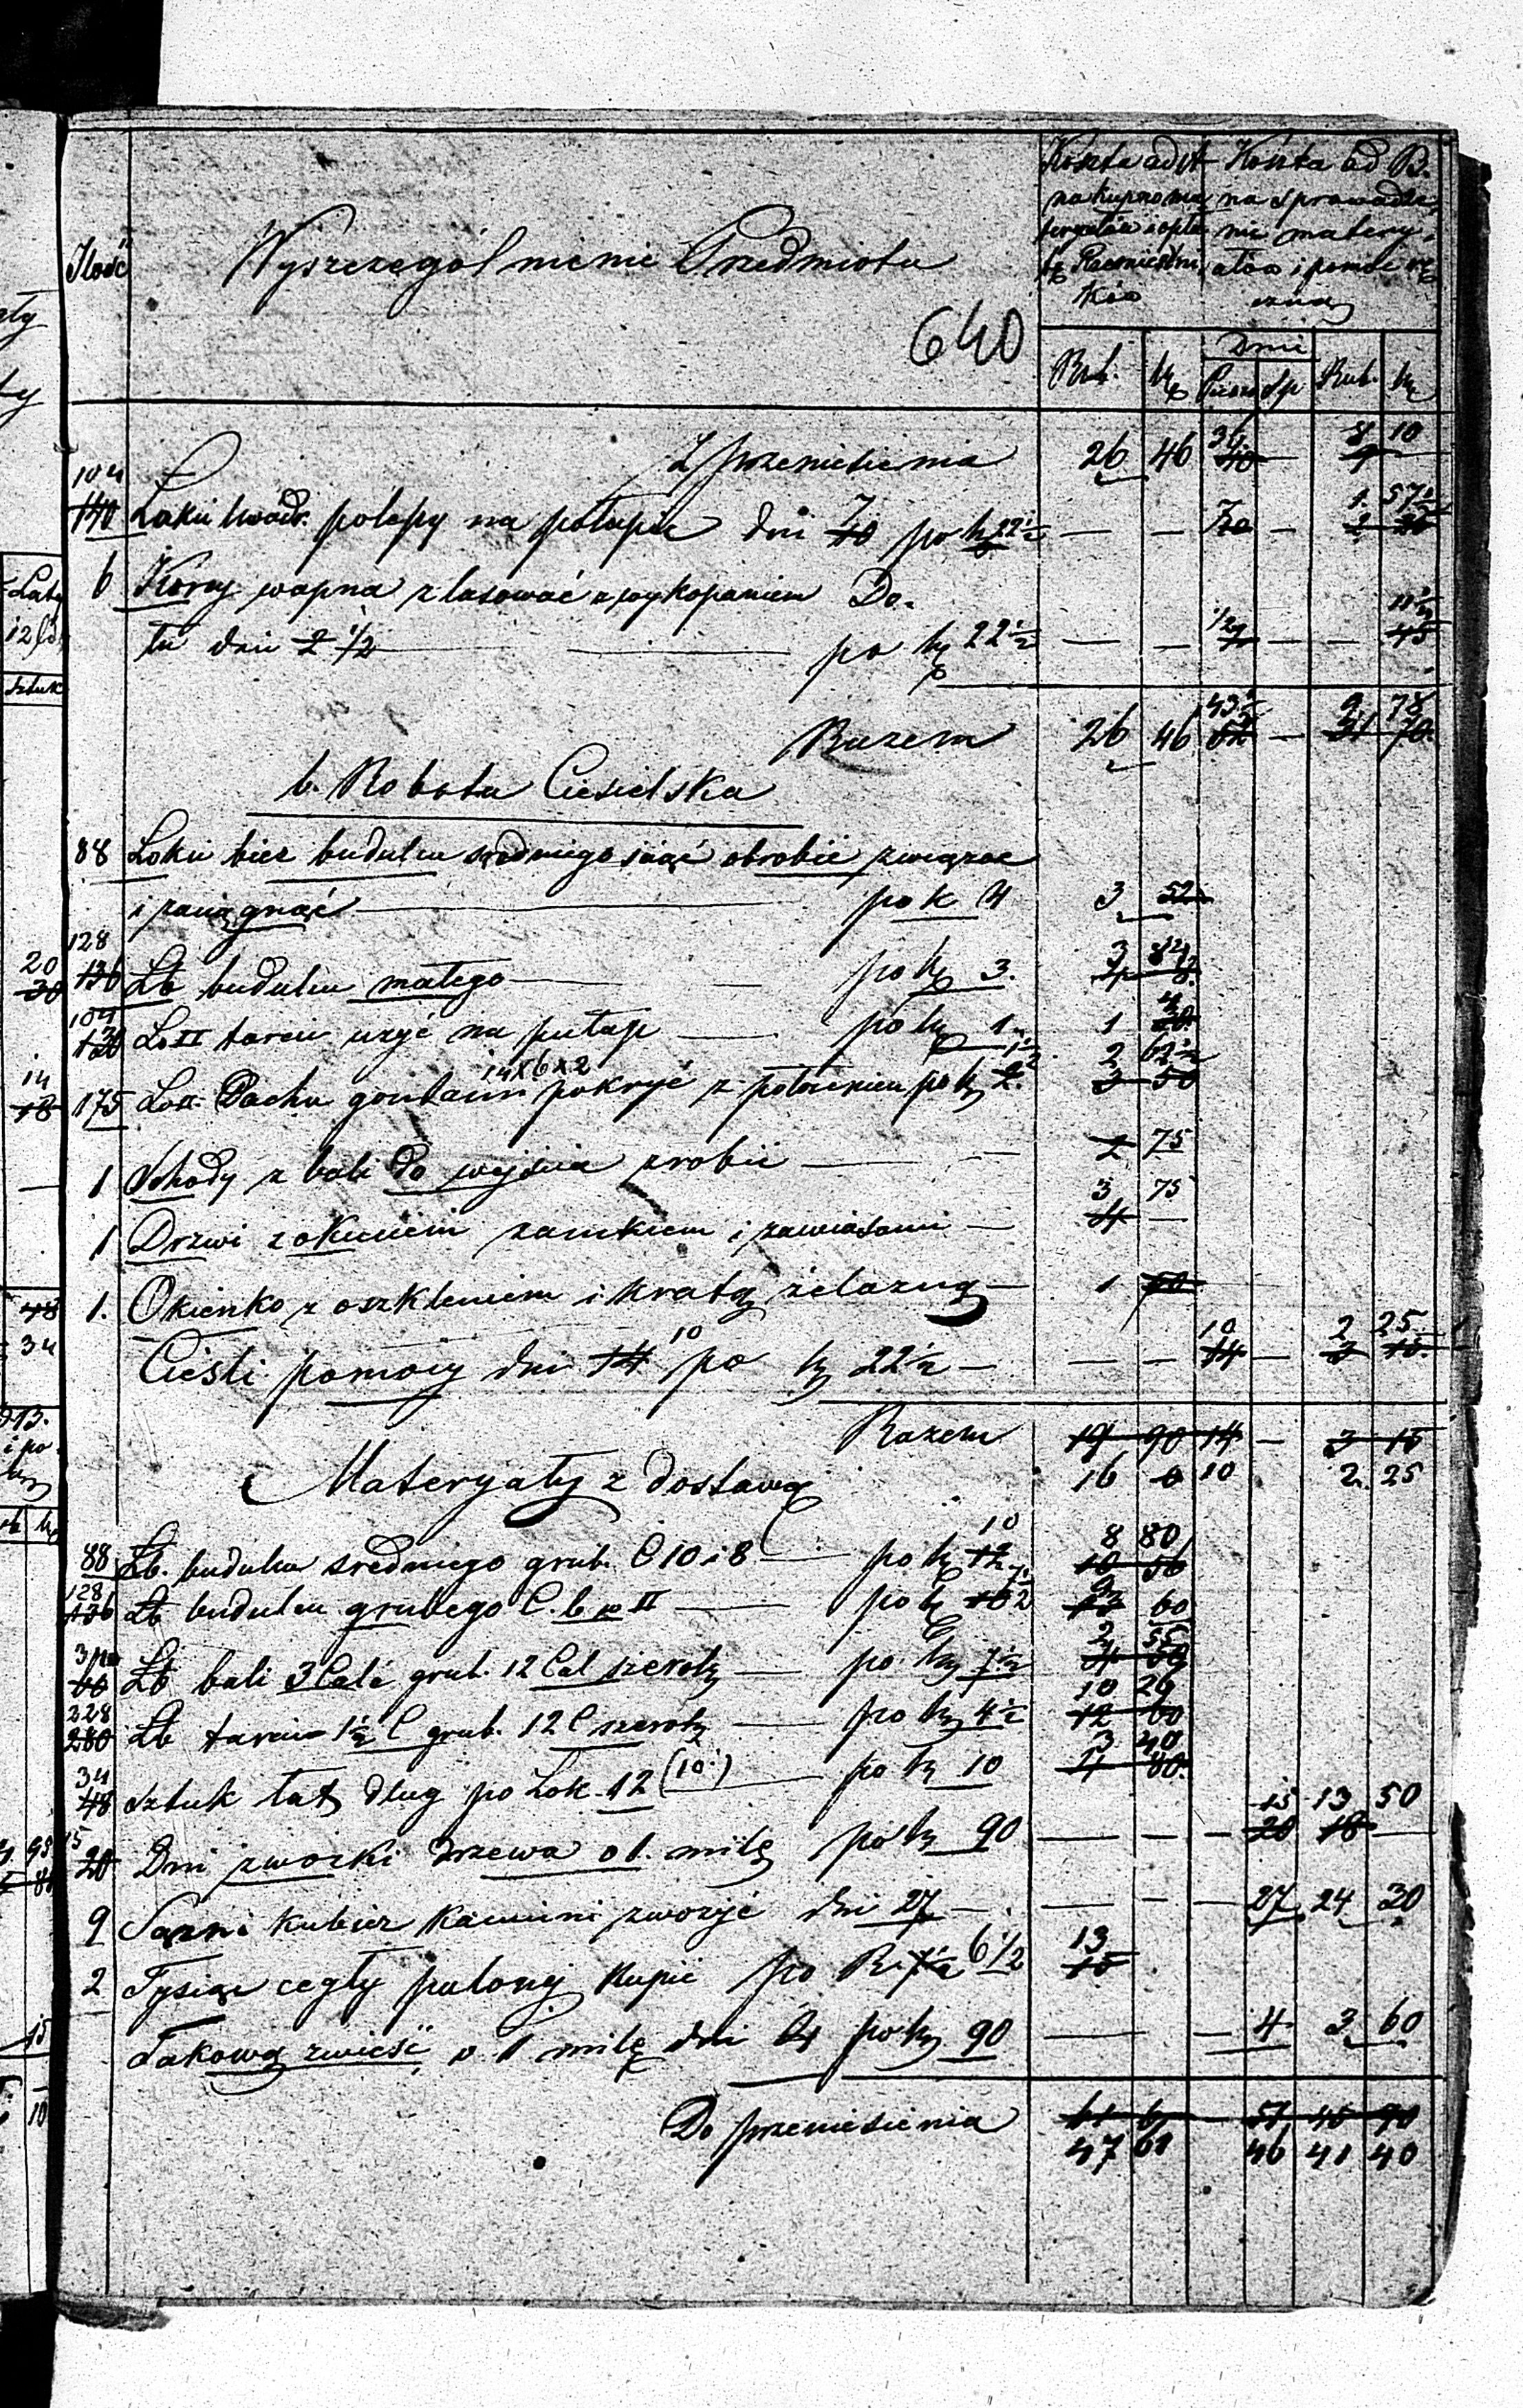 Ilość
Wyszczególnienie Przedmiotu
640
Koszta ad A
na kupno ma
Koszta ad B.
na sprowadze
nie matery
ałów i pomoc rę
czną
Rub. k Dnie Rub. k
Piesze Sp
Z przeniesienia 26 46 36 40 — 8 10 9 —
104 140 Łokci kwadr. polepy na pułapie dni 7 10 po k 22½ — — 7 10 — 1 57½ 2 25
6 Korcy wapna zlasować z wykopaniem Do.
łu dni 2 ½ — po kę 22½ — — ½ 2 — — 11½ 45
Razem 26 46 43½ 52 — 9 78 11 70
b. Robota Ciesielska
88 Łokci bież budulcu średniego ściąć obrobić związać
i zaciągnąć — po k 4 3 52
128 136 Łb budulcu małego — po kę 3. 3 84 4 8
104 120 Ło II tarcic użyć na pułap — po kę 1. 1 4 20
14x6x2
175 Ło II. Dachu gontami pokryć z połaceniem po k 1½ 2. 2 62½ 3 50
1 Schody z bali do wejścia zrobić — 2 75
1 Drzwi z okuciem zamkiem i zawiasami — 3 75 4 —
1. Okienko z oszkleniem i kratą żelazną — 1 50
Cieśli pomocy dni 14 10 po k 22½ — — — 10 14 — 2 25 3 15
Razem 19 90 14 — 3 15
Materyały z dostawą 16 6 10 2 25
88 Łb. budulcu średniego grub. C 10 i 8 — po k 12 10 8 80 10 56
128 136 Łb budulcu grubego C. 6 — po k 10 7½ 9 60
60 Łb bali 3 Cale grub. 12 Cal szerok — po k 7½ 2 55 4 50
228 280 Łb tarcic 1½ C grub. 12 C szerok — po k 4½ 10 26 12 60
34 48 Sztuk łat dług po Łok. 12 (10.) — po k 10 3 40 4 80
15 20 Dni zwózki drzewa o 1. milę po k 90 — — — 15 13 50 20 18 —
9 Sążni kubicz kamieni zwozić dni 27 — — — — 27 24 30
2 Tysiące cegły palonej kupić po R. 7½ 6 1/2 13 15
Takową zwieść o 1 milę dni 4 po k 90 — — 4 3 60
Do przeniesienia 61 6 — 51 45 90
47 61 46 41 40